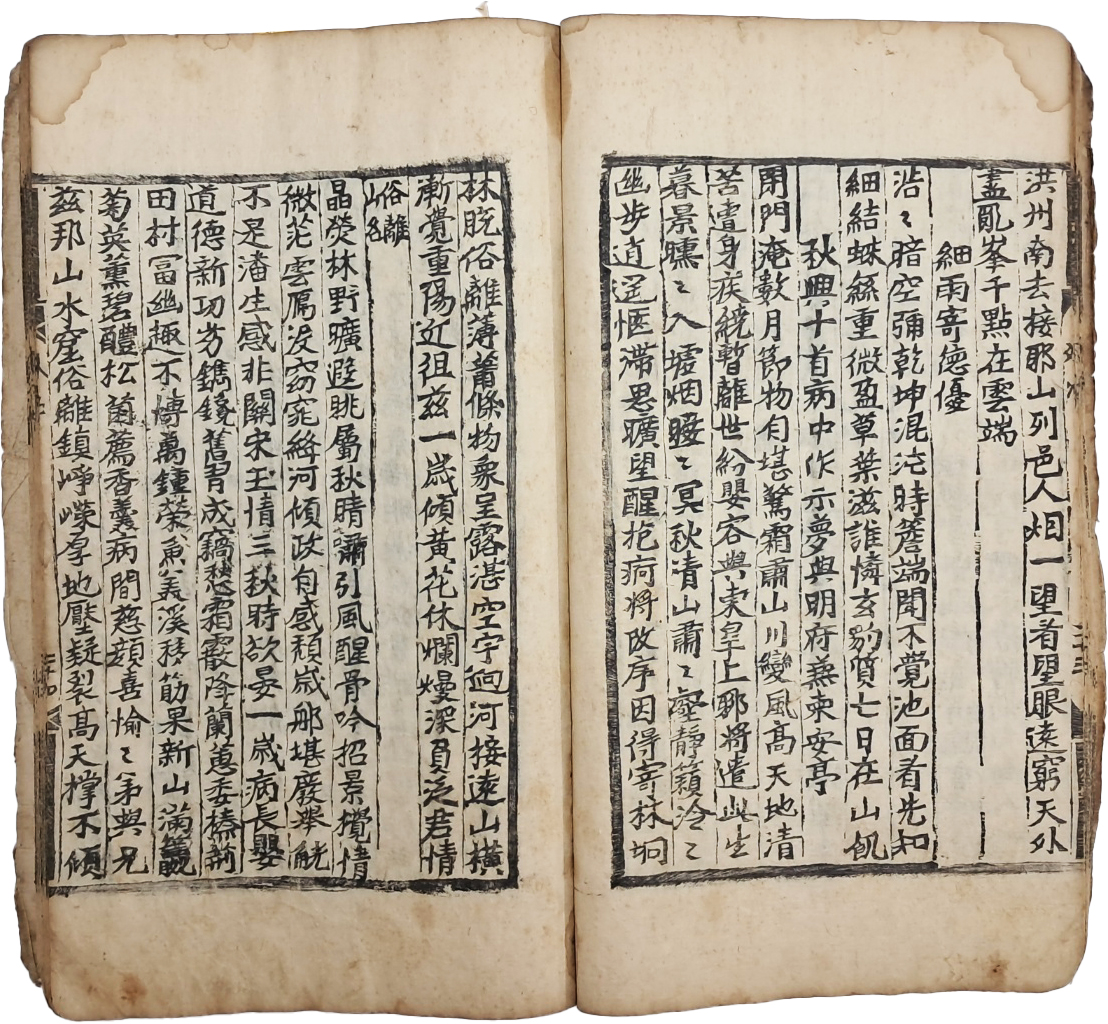 洪州南去接耶山列邑人烟一望看望眼遠窮天外
盡亂峯千點在雲端
細雨寄德優
浩〻暗空彌乾坤混沌時簷端聞不覺池面看先知
細結蛛絲重微盈草葉滋誰憐玄豹質七日在山飢
秋興十首病中作示夢與明府兼柬安亭
閉門淹數月節物自堪驚霜肅山川變風高天地清
苦遭身疾繞暫離世紛嬰容與東皇上那將遣此生
暮景曛〻入墟烟曖〻冥秋清山肅〻壑靜籟泠〻
幽步逍遥愜滯思曠望醒抱痾將改序因得寄林坰
林脫俗離薄蕭條物象呈露湛空宇逈河接遠山橫
漸覺重陽近徂玆一歲傾黃花休爛熳深負泛君情
俗離
山名
晶熒林野曠遐眺屬秋晴瀟引風醒骨吟招景攪情
微茫雲鴈沒窈窕絳河傾政自感頹歲那堪廢舉觥
不是潘生感非關宋玉情三秋時欲晏一歲病長嬰
道德新功劣鐫鑱舊習成鷄愁霜霰降蘭蕙委榛荊
田村冨幽趣不愽萬鍾榮魚美溪移筋果新山滿籯
菊英薰碧醴松菌薦香羹病間慈顔喜愉〻弟與兄
玆邦山水窟俗離鎖崢嶸厚地壓疑裂高天撑不傾